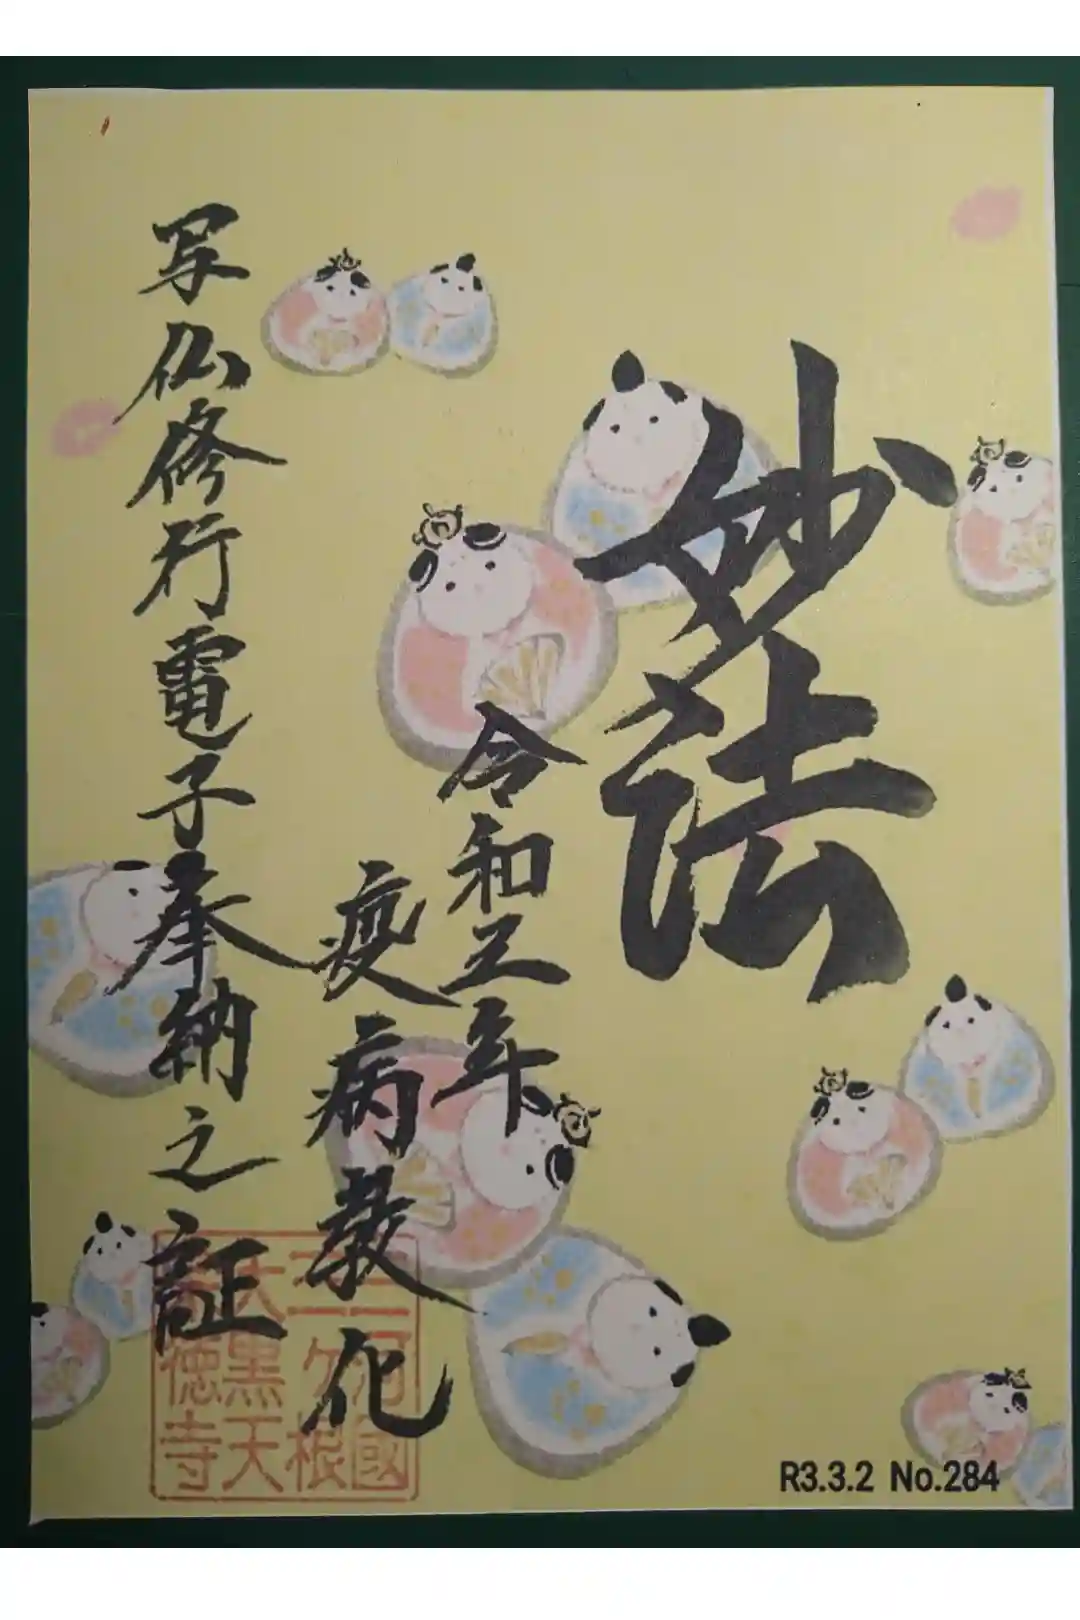 妙法
令和三年
疫病教化
写仏修行電子奉納之証
三河國
三ヶ根
大黒天
徳寺
R3.3.2 No.284